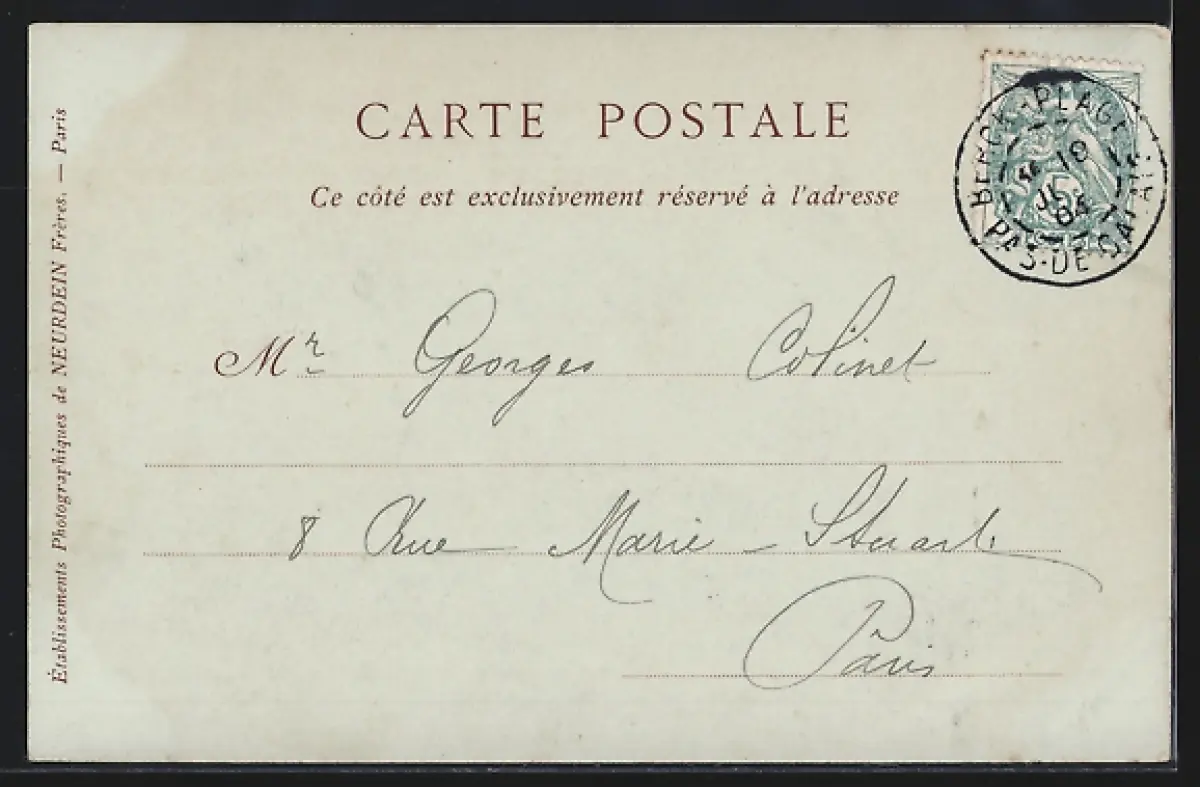 CARTE POSTALE
Ce côté est exclusivement réservé à l'adresse
BERCK-PLAGE
18
JL
04
PAS-DE-CALAIS
5
Mr Georges Colinet
8 Rue Marie-Stuart
Paris
Établissements Photographiques de NEURDEIN Frères. — Paris